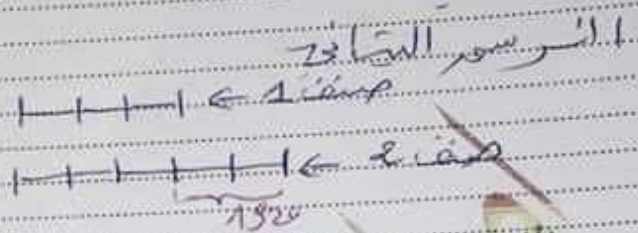 الرسم البياني
صنف 1 ←
صنف 2 ←
1920